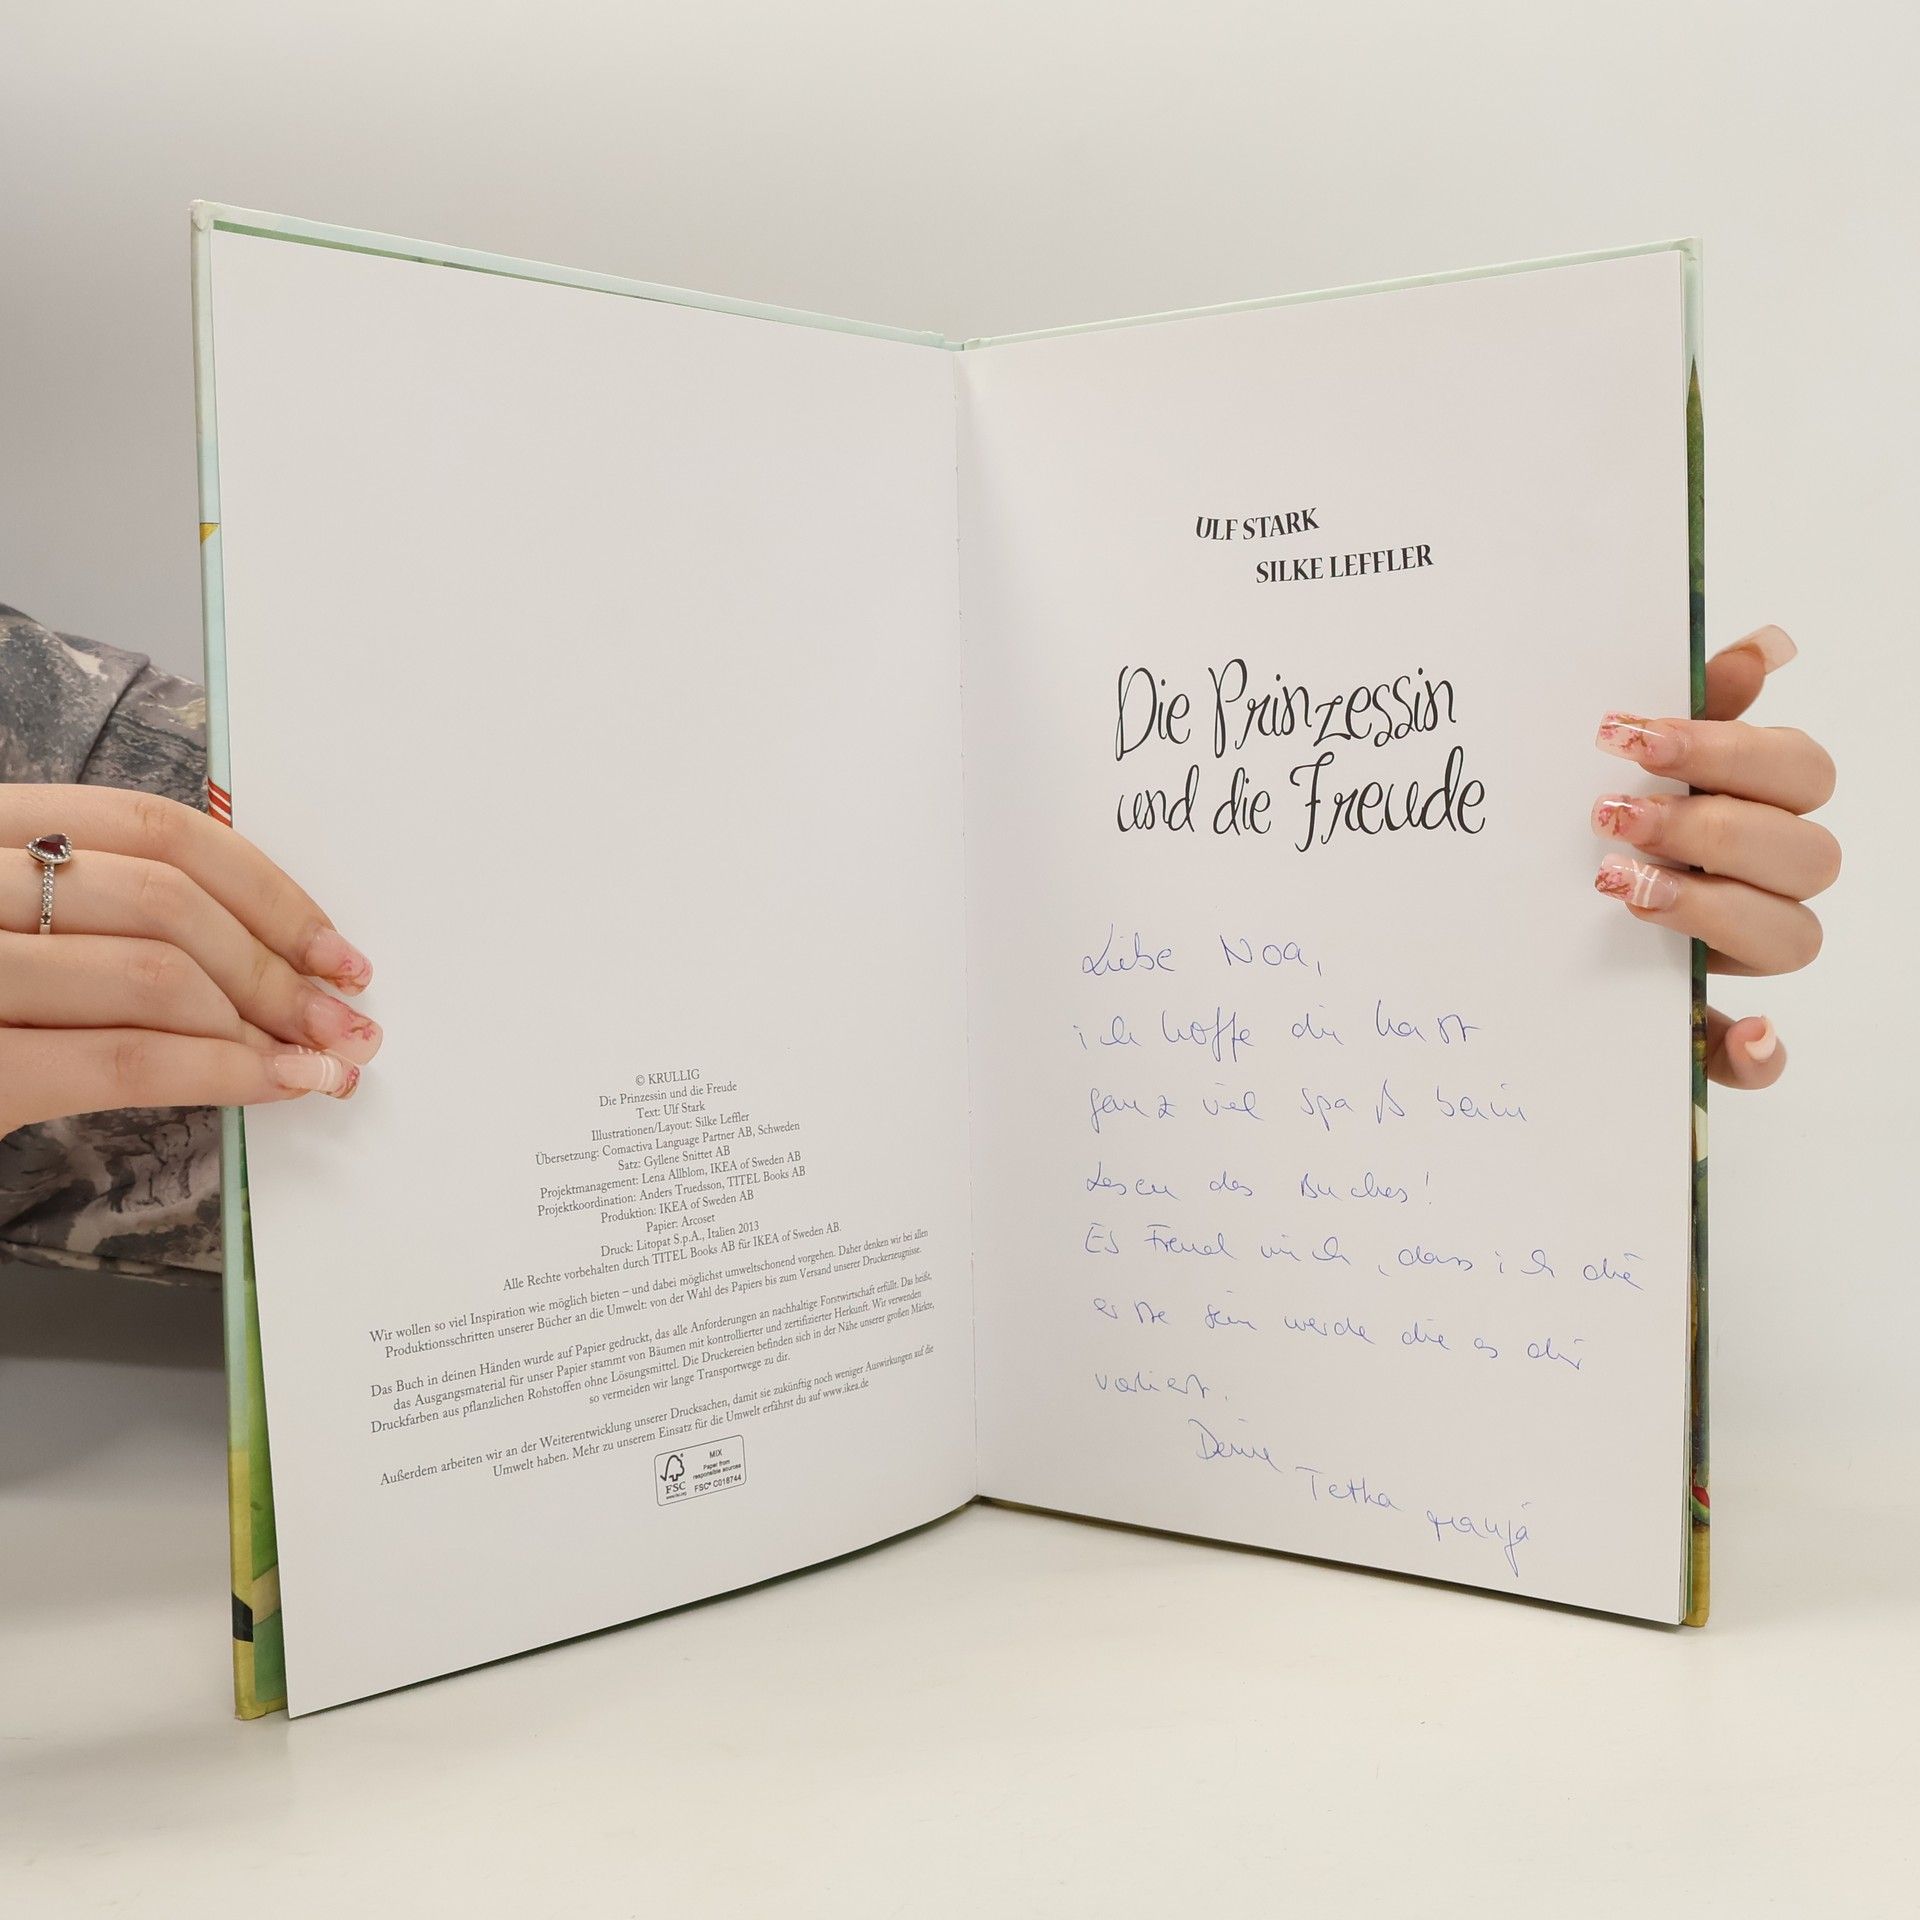 © KRULLIG
Die Prinzessin und die Freude
Text: Ulf Stark
Illustrationen/Layout: Silke Leffler
Übersetzung: Comactiva Language Partner AB, Schweden
Satz: Gyllene Snittet AB
Projektmanagement: Lena Allblom, IKEA of Sweden AB
Projektkoordination: Anders Truedsson, TITEL Books AB
Produktion: IKEA of Sweden AB
Papier: Arcoset
Druck: Litopat S.p.A., Italien 2013
Alle Rechte vorbehalten durch TITEL Books AB für IKEA of Sweden AB.
Wir wollen so viel Inspiration wie möglich bieten – und dabei möglichst umweltschonend vorgehen. Daher denken wir bei allen
Produktionsschritten unserer Bücher an die Umwelt: von der Wahl des Papiers bis zum Versand unserer Druckerzeugnisse.
Das Buch in deinen Händen wurde auf Papier gedruckt, das alle Anforderungen an nachhaltige Forstwirtschaft erfüllt. Das heißt,
das Ausgangsmaterial für unser Papier stammt von Bäumen mit kontrollierter und zertifizierter Herkunft. Wir verwenden
Druckfarben aus pflanzlichen Rohstoffen ohne Lösungsmittel. Die Druckereien befinden sich in der Nähe unserer großen Märkte,
so vermeiden wir lange Transportwege zu dir.
Außerdem arbeiten wir an der Weiterentwicklung unserer Drucksachen, damit sie zukünftig noch weniger Auswirkungen auf die
Umwelt haben. Mehr zu unserem Einsatz für die Umwelt erfährst du auf www.ikea.de
FSC
www.fsc.org
MIX
Paper from
responsible sources
FSC® C018744
ULF STARK
SILKE LEFFLER
Die Prinzessin
und die Freude
Liebe Noa,
ich hoffe du hast
ganz viel Spaß beim
Lesen des Buches!
Es Freud mich, dass ich die
erste sein werde die es dir
vorliest.
Deine
Tetka